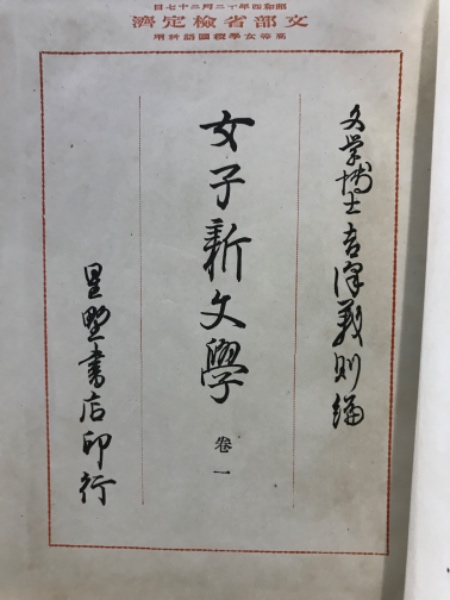 昭和四年十二月二十七日
文部省檢定濟
高等女學校國語科用
文学博士吉澤義則編
女子新文學
卷一
星野書店印行